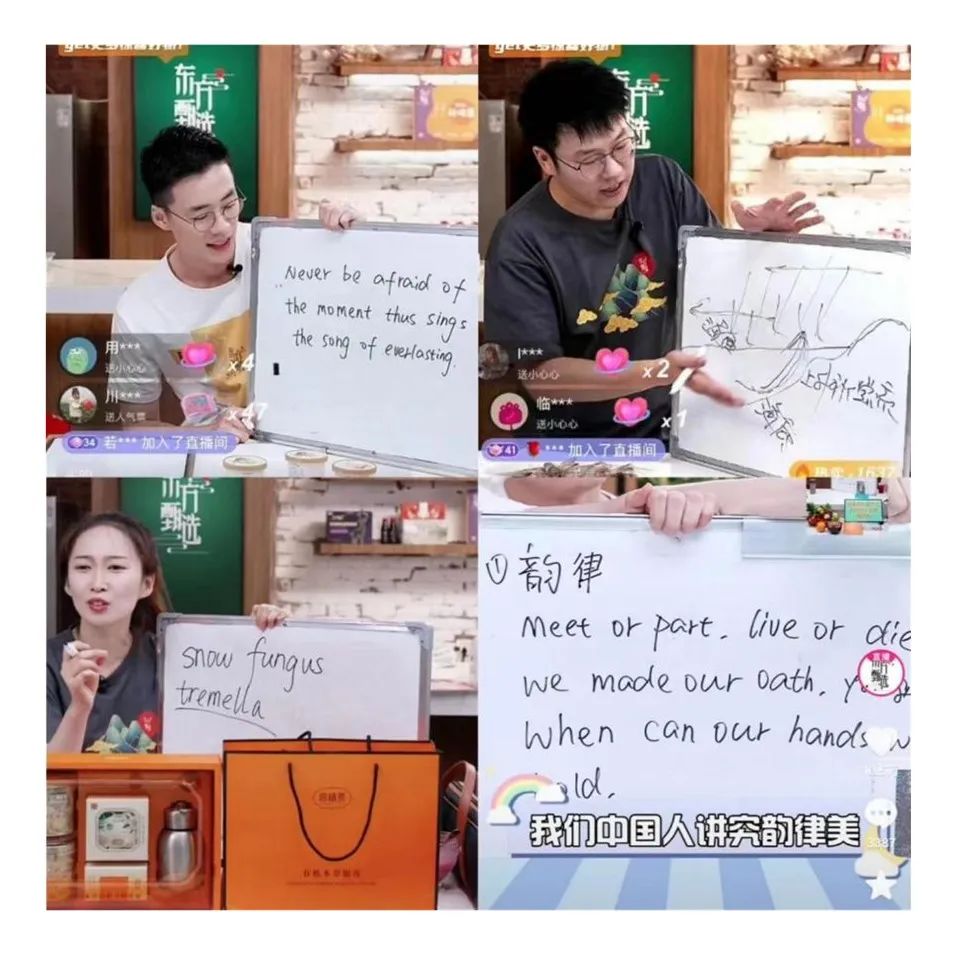 get更多惊喜好物!
东方
甄选
Never be afraid of
the moment thus sings
the song of everlasting.
用***
送小心心
x4
川***
送人气票
x47
34 若*** 加入了直播间
东方
甄选
l***
送小心心
x2
临***
送小心心
x1
41 *** 加入了直播间
海底
1637
东方
甄选
snow fungus
tremella
①韵律
Meet or part, live or die
we made our oath, yo
When can our hands w
old.
直播
东方
甄选
我们中国人讲究韵律美
3387